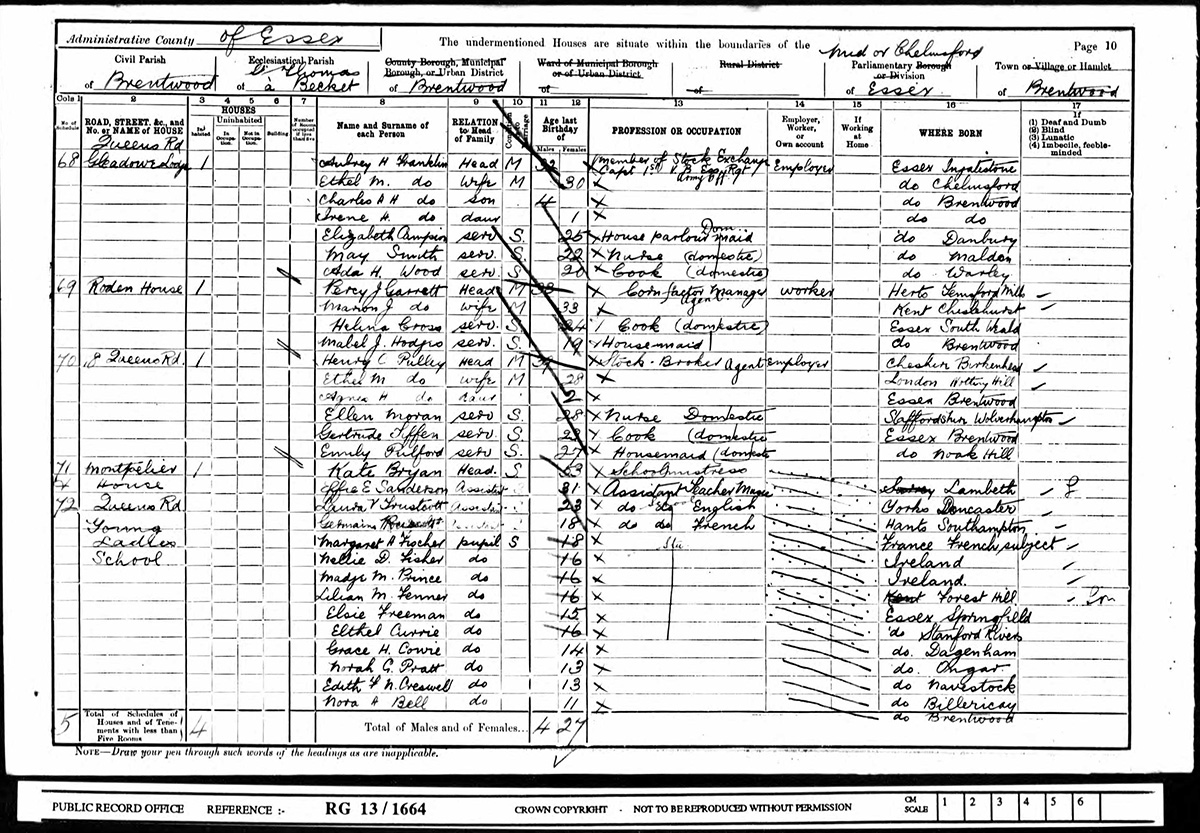 Administrative County of Essex
The undermentioned Houses are situate within the boundaries of the
Page 10
Civil Parish of Brentwood
Ecclesiastical Parish of St Thomas à Becket
County Borough, Municipal Borough, or Urban District of Brentwood
Ward of Municipal Borough or of Urban District of
Rural District of
Mid or Chelmsford Parliamentary Borough or Division of Essex
Town or Village or Hamlet of Brentwood
Cols 1 2 3 4 5 6 7 8 9 10 11 12 13 14 15 16 17
No. of Schedule
ROAD, STREET, &c., and No. or NAME of HOUSE
HOUSES
Inhabited
Uninhabited
In Occupation
Not in Occupation
Building
Number of Rooms occupied if less than five
Name and Surname of each Person
RELATION to Head of Family
Condition as to Marriage
Age last Birthday of
Males Females
PROFESSION OR OCCUPATION
Employer, Worker, or Own account
If Working at Home
WHERE BORN
If (1) Deaf and Dumb (2) Blind (3) Lunatic (4) Imbecile, feeble-minded
Queens Rd
68 Gleadowe Lodge 1 Aubrey H Franklin Head M 32 Member of Stock Exchange Capt 1st V.B. Essx Rgt Army Off. Employer Essex Ingatestone
Ethel M. do wife M 30 × do Chelmsford
Charles A H do son 4 × do Brentwood
Irene H. do daur 1 × do do
Elizabeth Campion serv S. 25 × House parlour maid Dom do Danbury
May Smith serv. S. 22 × Nurse (domestic) do Maldon
Ada H. Wood serv. S 20 × Cook (domestic) do Warley
69 Roden House 1 Percy J Garrett Head M 33 × Corn factor Manager Agent worker Herts Mills
Marion J do wife M 33 × Kent Chislehurst
Helina Cross serv. S. 24 / Cook (domestic) Essex South Weald
Mabel J. Hodges serv. S 19 × Housemaid do Brentwood
70 18 Queens Rd. 1 Henry C Pulley Head M × Stock-Broker Agent Employer Cheshire Birkenhead
Ethel M do wife M 28 × London Notting Hill
Agnes H do daur 2 Essex Brentwood
Ellen Moran serv S 28 × Nurse Domestic Staffordshire Wolverhampton
Gertrude Tiffen serv. S. 23 × Cook (domestic Essex Brentwood
Emily Pulford serv S 27 × Housemaid (domestic do Noak Hill
71 Montpelier House 1 Kate Bryan Head. S 53 × Schoolmistress
Effie E Sanderson Assistant 31 × Assistant Teacher Music Lambeth
72 Queens Rd Laura V Assistant 23 × do do English Yorks Doncaster
Young Germaine 18 × do do French Hants Southampton
Ladies Margaret A Fischer pupil S 18 × France French subject
School Nellie D. Fisher do 16 × Ireland
Madge M. Prince do 16 × Ireland.
Lilian M. Fenner do 16 × Kent Forest Hill
Elsie Freeman do 15 × Essex Springfield
Elthel Currie do 16 × do Stanford Rivers
Grace H. Cowie do 14 × do. Dagenham
Norah G. Pratt do 13 × do. Ongar
Edith F N. Creswell do 13 × do Navestock
Nora A Bell do 11 × do Billericay
do Brentwood
5 Total of Schedules of Houses and of Tenements with less than Five Rooms 4
Total of Males and of Females... 4 27
NOTE—Draw your pen through such words of the headings as are inapplicable.
PUBLIC RECORD OFFICE REFERENCE :- RG 13/1664 CROWN COPYRIGHT - NOT TO BE REPRODUCED WITHOUT PERMISSION CM SCALE 1 2 3 4 5 6